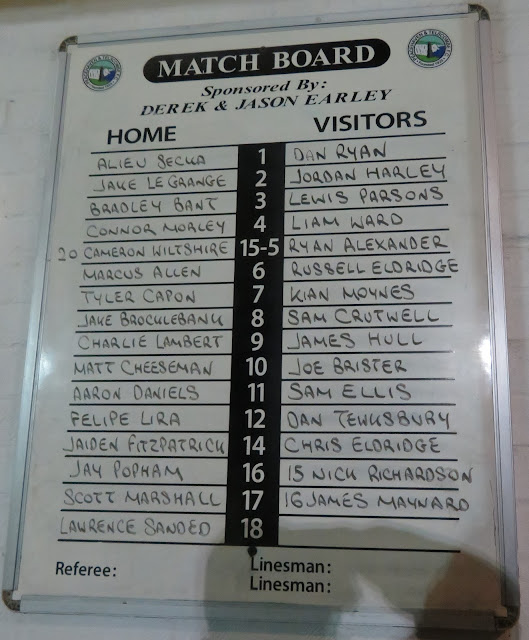 MATCH BOARD
Sponsored By:
DEREK & JASON EARLEY
HOME VISITORS
ALIEU SECKA 1 DAN RYAN
JAKE LE GRANGE 2 JORDAN HARLEY
BRADLEY BANT 3 LEWIS PARSONS
CONNOR MORLEY 4 LIAM WARD
20 CAMERON WILTSHIRE 15-5 RYAN ALEXANDER
MARCUS ALLEN 6 RUSSELL ELDRIDGE
TYLER CAPON 7 KIAN MOYNES
JAKE BROCKLEBANK 8 SAM CRUTWELL
CHARLIE LAMBERT 9 JAMES HULL
MATT CHEESEMAN 10 JOE BRISTER
AARON DANIELS 11 SAM ELLIS
FELIPE LIRA 12 DAN TEWKSBURY
JAIDEN FITZPATRICK 14 CHRIS ELDRIDGE
JAY POPHAM 16 15 NICK RICHARDSON
SCOTT MARSHALL 17 16 JAMES MAYNARD
LAWRENCE SANDED 18
Referee: Linesman:
Linesman: